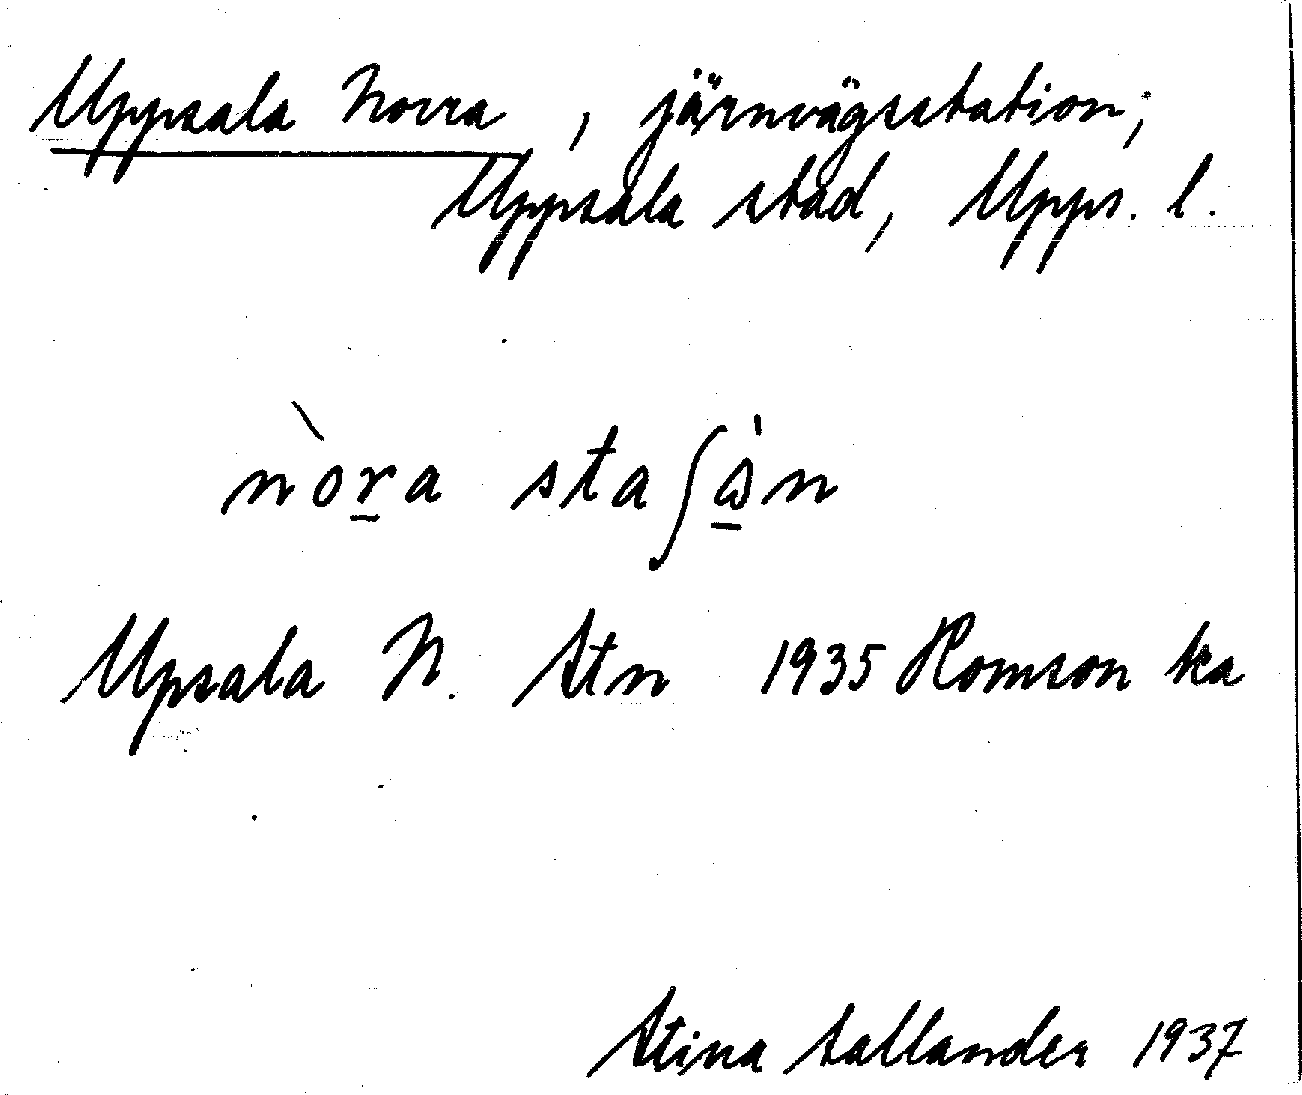 Uppsala Norra, järnvägsstation;
Uppsala stad, Upps. l.
nòra staʃån
Upsala N. Stn 1935 Homson ka
Stina Sallander 1937